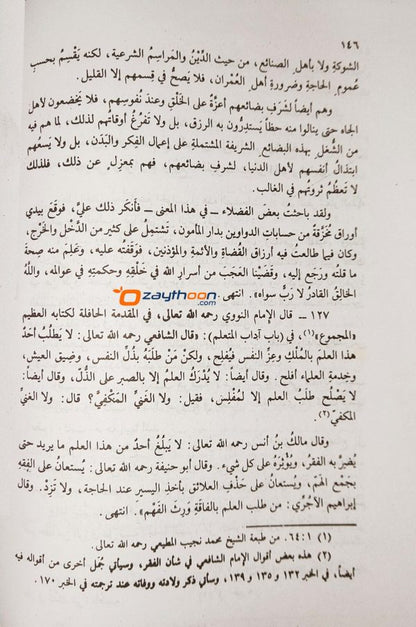 ١٤٦
الشوكةِ ولا بأهلِ الصنائع، من حيث الدِّيْنُ والمَراسِمُ الشرعية، لكنه يَقْسِمُ بحسبِ
عُمومِ الحاجةِ وضرورةِ أهلِ العُمْران، فلا يَصحُّ في قِسمهم إلا القليل.
وهم أيضاً لشَرَفِ بضائعهم أعزَّةٌ على الخَلْقِ وعند نُفوسِهم، فلا يَخضعون لأهل
الجاه حتى ينالوا منه حظاً يَستدِرُّون به الرزق، بل ولا تَفرُغُ أوقاتُهم لذلك، لما هم فيه
من الشُّغلِ بهذه البضائعِ الشريفة المشتملةِ على إعمال الفِكر والبَدَن، بل ولا يَسعُهم
ابتذالُ أنفسهم لأهل الدنيا، لشرفِ بضائعهم، فهم بمعزلٍ عن ذلك، فلذلك
لا تَعظُمُ ثروتُهم في الغالب.
ولقد باحثتُ بعضَ الفضلاء ــ في هذا المعنى ــ فأنكَر ذلك عليَّ، فوقَعَ بيدي
أوراق مُخَرَّقةٌ من حساباتِ الدواوين بدار المأمون، تَشتملُ على كثير من الدَّخْل والخَرْج،
وكان فيما طالعتُ فيه أرزاق القُضاةِ والأئمةِ والمؤذنين، فوَقفتُه عليه، وعَلِمَ منه صِحةَ
ما قلتُه ورَجَع إليه، وقضَيْنا العَجَبَ من أسرارِ الله في خَلْقِه وحكمتِه في عوالمه، واللَّهُ
الخالِقُ القادرُ لا رَبَّ سواه». انتهى.
zaythoon.com
١٢٧ – قال الإمام النووي رحمه الله تعالى، في المقدمة الحافلة لكتابه العظيم
«المجموع»(١)، في (باب آداب المتعلم): «قال الشافعي رحمه الله تعالى: لا يَطلُبُ أحدٌ
هذا العلمَ بالمُلْكِ وعِزِّ النفس فيُفلِح، ولكنْ مَنْ طلَبَهُ بذُلِّ النفس، وضِيقِ العيش،
وخِدمةِ العلماء أفلح. وقال أيضاً: لا يُدرَكُ العلمُ إلا بالصبر على الذُّلّ، وقال أيضاً:
لا يَصْلُح طلبُ العلم إلا لمُفلِس، فقيل: ولا الغنيُّ المَكْفِيُّ؟ قال: ولا الغنيُّ
المكفيُّ(٢).
وقال مالكُ بنُ أنس رحمه الله تعالى: لا يَبلُغُ أحدٌ من هذا العلم ما يريد حتى
يُضِرَّ به الفقرُ، ويُؤثِرَهُ على كل شيء. وقال أبو حنيفة رحمه الله تعالى: يُستعانُ على الفِقهِ
بجَمْع الهَمّ، ويُستعانُ على حَذْفِ العلائقِ بأخذِ اليسير عند الحاجة، ولا تَزِدْ. وقال
إبراهيم الآجُرِّي: من طلب العلم بالفاقةِ وَرِثَ الفَهْم». انتهى.
(١) ١:٦٤. من طبعة الشيخ محمد نجيب المطيعي رحمه الله تعالى.
(٢) هذه بعض أقوال الإمام الشافعي في شأن الفقر، وسيأتي جُمَل أخرى من أقواله فيه
أيضاً، في الخبر ١٣٢ و ١٣٥ و ١٣٩، وسأتي ذكر ولادته ووفاته عند ترجمته في الخبر ١٧٠.